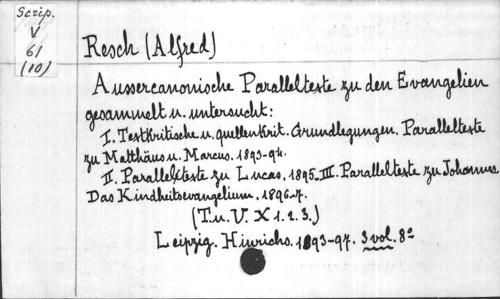 Scrip.
V
61
(10)
Resch (Alfred)
Aussercanonische Paralleltexte zu den Evangelien
gesammelt u. untersucht:
I. Textkritische u. quellenkrit. Grundlegungen. Paralleltexte
zu Matthäus u. Marcus. 1893-94.
II. Paralleltexte zu Lucas. 1895. III. Paralleltexte zu Johannes
Das Kindheitsevangelium. 1896-7.
(T. u. V. X 1. 2. 3.)
Leipzig. Hinrichs. 1893-97. 3 vol. 8°